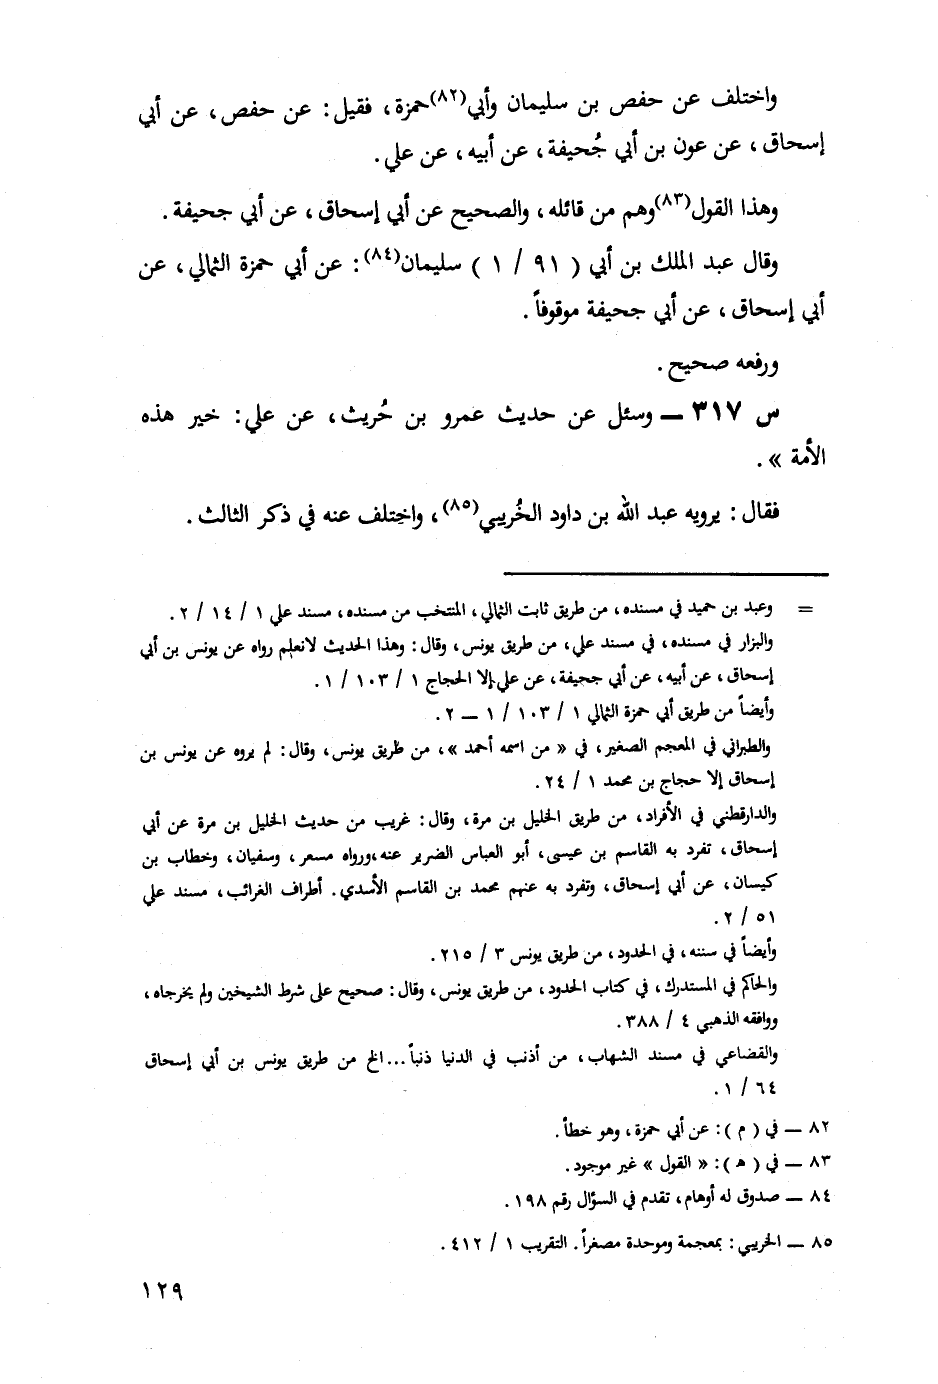 واختلف عن حفص بن سليمان وأبي(٨٢)حمزة ، فقيل : عن حفص ، عن أبي
إسحاق ، عن عون بن أبي جُحيفة ، عن أبيه ، عن علي .
وهذا القول(٨٣)وهم من قائله ، والصحيح عن أبي إسحاق ، عن أبي جحيفة .
وقال عبد الملك بن أبي ( ٩١ / ١ ) سليمان(٨٤) : عن أبي حمزة الثمالي ، عن
أبي إسحاق ، عن أبي جحيفة موقوفاً .
ورفعه صحيح .
س ٣١٧ ــ وسئل عن حديث عمرو بن حُريث ، عن علي : خير هذه
الأمة » .
فقال : يرويه عبد الله بن داود الخُريبي(٨٥) ، واختلف عنه في ذكر الثالث .
= وعبد بن حميد في مسنده ، من طريق ثابت الثمالي ، المنتخب من مسنده ، مسند علي ١ / ١٤ / ٢ .
والبزار في مسنده ، في مسند علي ، من طريق يونس ، وقال : وهذا الحديث لانعلم رواه عن يونس بن أبي
إسحاق ، عن أبيه ، عن أبي جحيفة ، عن علي إلا الحجاج ١ / ١٠٣ / ١ .
وأيضاً من طريق أبي حمزة الثمالي ١ / ١٠٣ / ١ ــ ٢ .
والطبراني في المعجم الصغير ، في « من اسمه أحمد » ، من طريق يونس ، وقال : لم يروه عن يونس بن
إسحاق إلا حجاج بن محمد ١ / ٢٤ .
والدارقطني في الأفراد ، من طريق الخليل بن مرة ، وقال : غريب من حديث الخليل بن مرة عن أبي
إسحاق ، تفرد به القاسم بن عيسى ، أبو العباس الضرير عنه ،ورواه مسعر ، وسفيان ، وخطاب بن
كيسان ، عن أبي إسحاق ، وتفرد به عنهم محمد بن القاسم الأسدي . أطراف الغرائب ، مسند علي
٥١ / ٢ .
وأيضاً في سننه ، في الحدود ، من طريق يونس ٣ / ٢١٥ .
والحاكم في المستدرك ، في كتاب الحدود ، من طريق يونس ، وقال : صحيح على شرط الشيخين ولم يخرجاه ،
ووافقه الذهبي ٤ / ٣٨٨ .
والقضاعي في مسند الشهاب ، من أذنب في الدنيا ذنباً ...الخ من طريق يونس بن أبي إسحاق
٦٤ / ١ .
٨٢ ــ في ( م ) : عن أبي حمزة ، وهو خطأ .
٨٣ ــ في ( هـ ) : « القول » غير موجود .
٨٤ ــ صدوق له أوهام ، تقدم في السؤال رقم ١٩٨ .
٨٥ ــ الخريبي : بمعجمة وموحدة مصغراً . التقريب ١ / ٤١٢ .
١٢٩